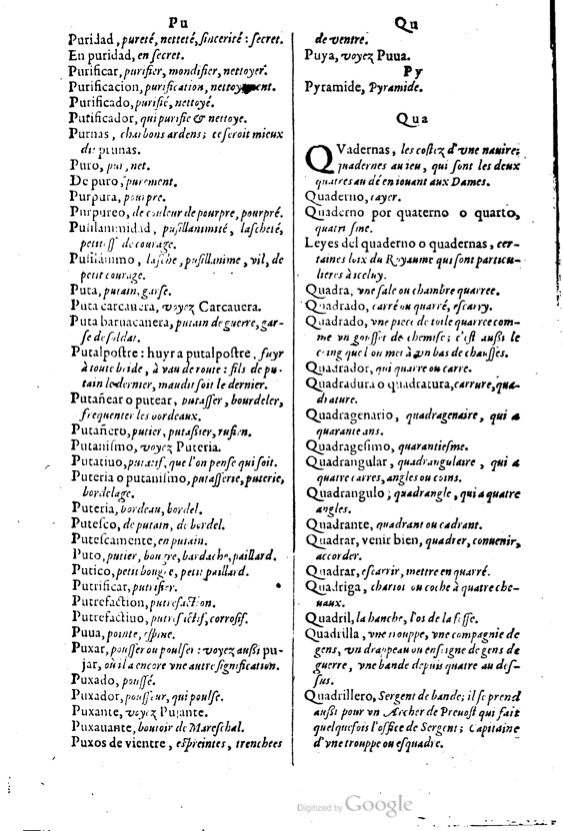 Pu
Puridad, pureté, netteté, sincerité : secret.
En puridad, en secret.
Purificar, purifier, mondifier, nettoyer.
Purificacion, purification, nettoyement.
Purificado, purifié, nettoyé.
Putificador, qui purifie & nettoye.
Purnas, charbons ardens; ce seroit mieux
dit prunas.
Puro, pur, net.
De puro, purement.
Purpura, pourpre.
Purpureo, de couleur de pourpre, pourpré.
Pusilanimidad, pusillanimité, lascheté,
petitesse de courage.
Pusilanimo, lasche, pusillanime, vil, de
petit courage.
Puta, putain, garse.
Puta carcauera, voyez Carcauera.
Puta barnacanera, putain de guerre, gar-
se de soldat.
Putalpostre : huyr a putalpostre, fuyr
à toute bride, à vau de route : fils de pu-
tain le dernier, maudit soit le dernier.
Putañear o putear, putasser, bourdeler,
frequenter les bordeaux.
Putañero, putier, putassier, rufien.
Putanismo, voyez Puteria.
Putatiuo, putatif, que l'on pense qui soit.
Puteria o putanismo, putasserie, puterie,
bordelage.
Puteria, bordeau, bordel.
Putesco, de putain, de bordel.
Putescamente, en putain.
Puto, putier, bougre, bardache, paillard.
Putico, petit bougre, petit paillard.
Putrificar, putrifier.
Putrefaction, putrefaction.
Putrefactiuo, putrefactif, corrosif.
Puua, pointe, espine.
Puxar, pousser ou poulser : voyez aussi pu-
jar, où il a encore vne autre signification.
Puxado, poussé.
Puxador, pousseur, qui poulse.
Puxante, voyez Pujante.
Puxauante, boutoir de Mareschal.
Puxos de vientre, espreintes, trenchees
Qu
de ventre.
Puya, voyez Puua.
Py
Pyramide, Pyramide.
Qua
QVadernas, les costez d'vne nauire;
quadernes au ieu, qui sont les deux
quatres au dé en iouant aux Dames.
Quaderno, cayer.
Quaderno por quaterno o quarto,
quatriesme.
Leyes del quaderno o quadernas, cer-
taines loix du Royaume qui sont particu-
lieres à iceluy.
Quadra, vne sale ou chambre quarree.
Quadrado, carré ou quarré, escarry.
Quadrado, vne piece de toile quarree com-
me vn gousset de chemise; c'est aussi le
coing que l'on met à vn bas de chausses.
Quadrador, qui quarre ou carre.
Quadradura o quadratura, carrure, qua-
drature.
Quadragenario, quadragenaire, qui a
quarante ans.
Quadragesimo, quarantiesme.
Quadrangular, quadrangulaire, qui a
quatre carres, angles ou coins.
Quadrangulo; quadrangle, qui a quatre
angles.
Quadrante, quadrant ou cadrant.
Quadrar, venir bien, quadrer, conuenir,
accorder.
Quadrar, escarrir, mettre en quarré.
Quadriga, chariot ou coche à quatre che-
uaux.
Quadril, la hanche, l'os de la fesse.
Quadrilla, vne trouppe, vne compagnie de
gens, vn drappeau ou enseigne de gens de
guerre, vne bande depuis quatre au des-
sus.
Quadrillero, Sergent de bande; il se prend
aussi pour vn Archer de Preuost qui fait
quelquefois l'office de Sergent; Capitaine
d'vne trouppe ou esquadre.
Digitized by Google